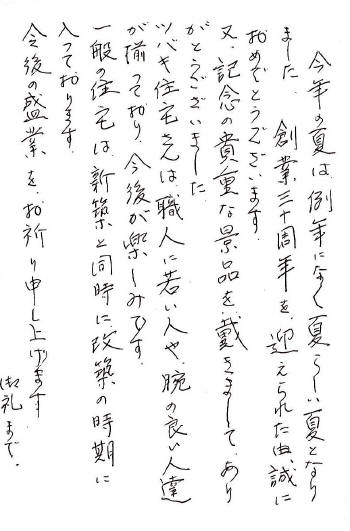 今年の夏は、例年になく夏らしい夏となり
ました。創業三十周年を迎えられた由、誠に
おめでとうございます。
又、記念の貴重な景品を戴きまして、あり
がとうございました
ツバキ住宅さんは職人に若い人や、腕の良い人達
が揃っており、今後が楽しみです。
一般の住宅は、新築と同時に、改築の時期に
入っております。
今後の盛業を、お祈り申し上げます
御礼まで、